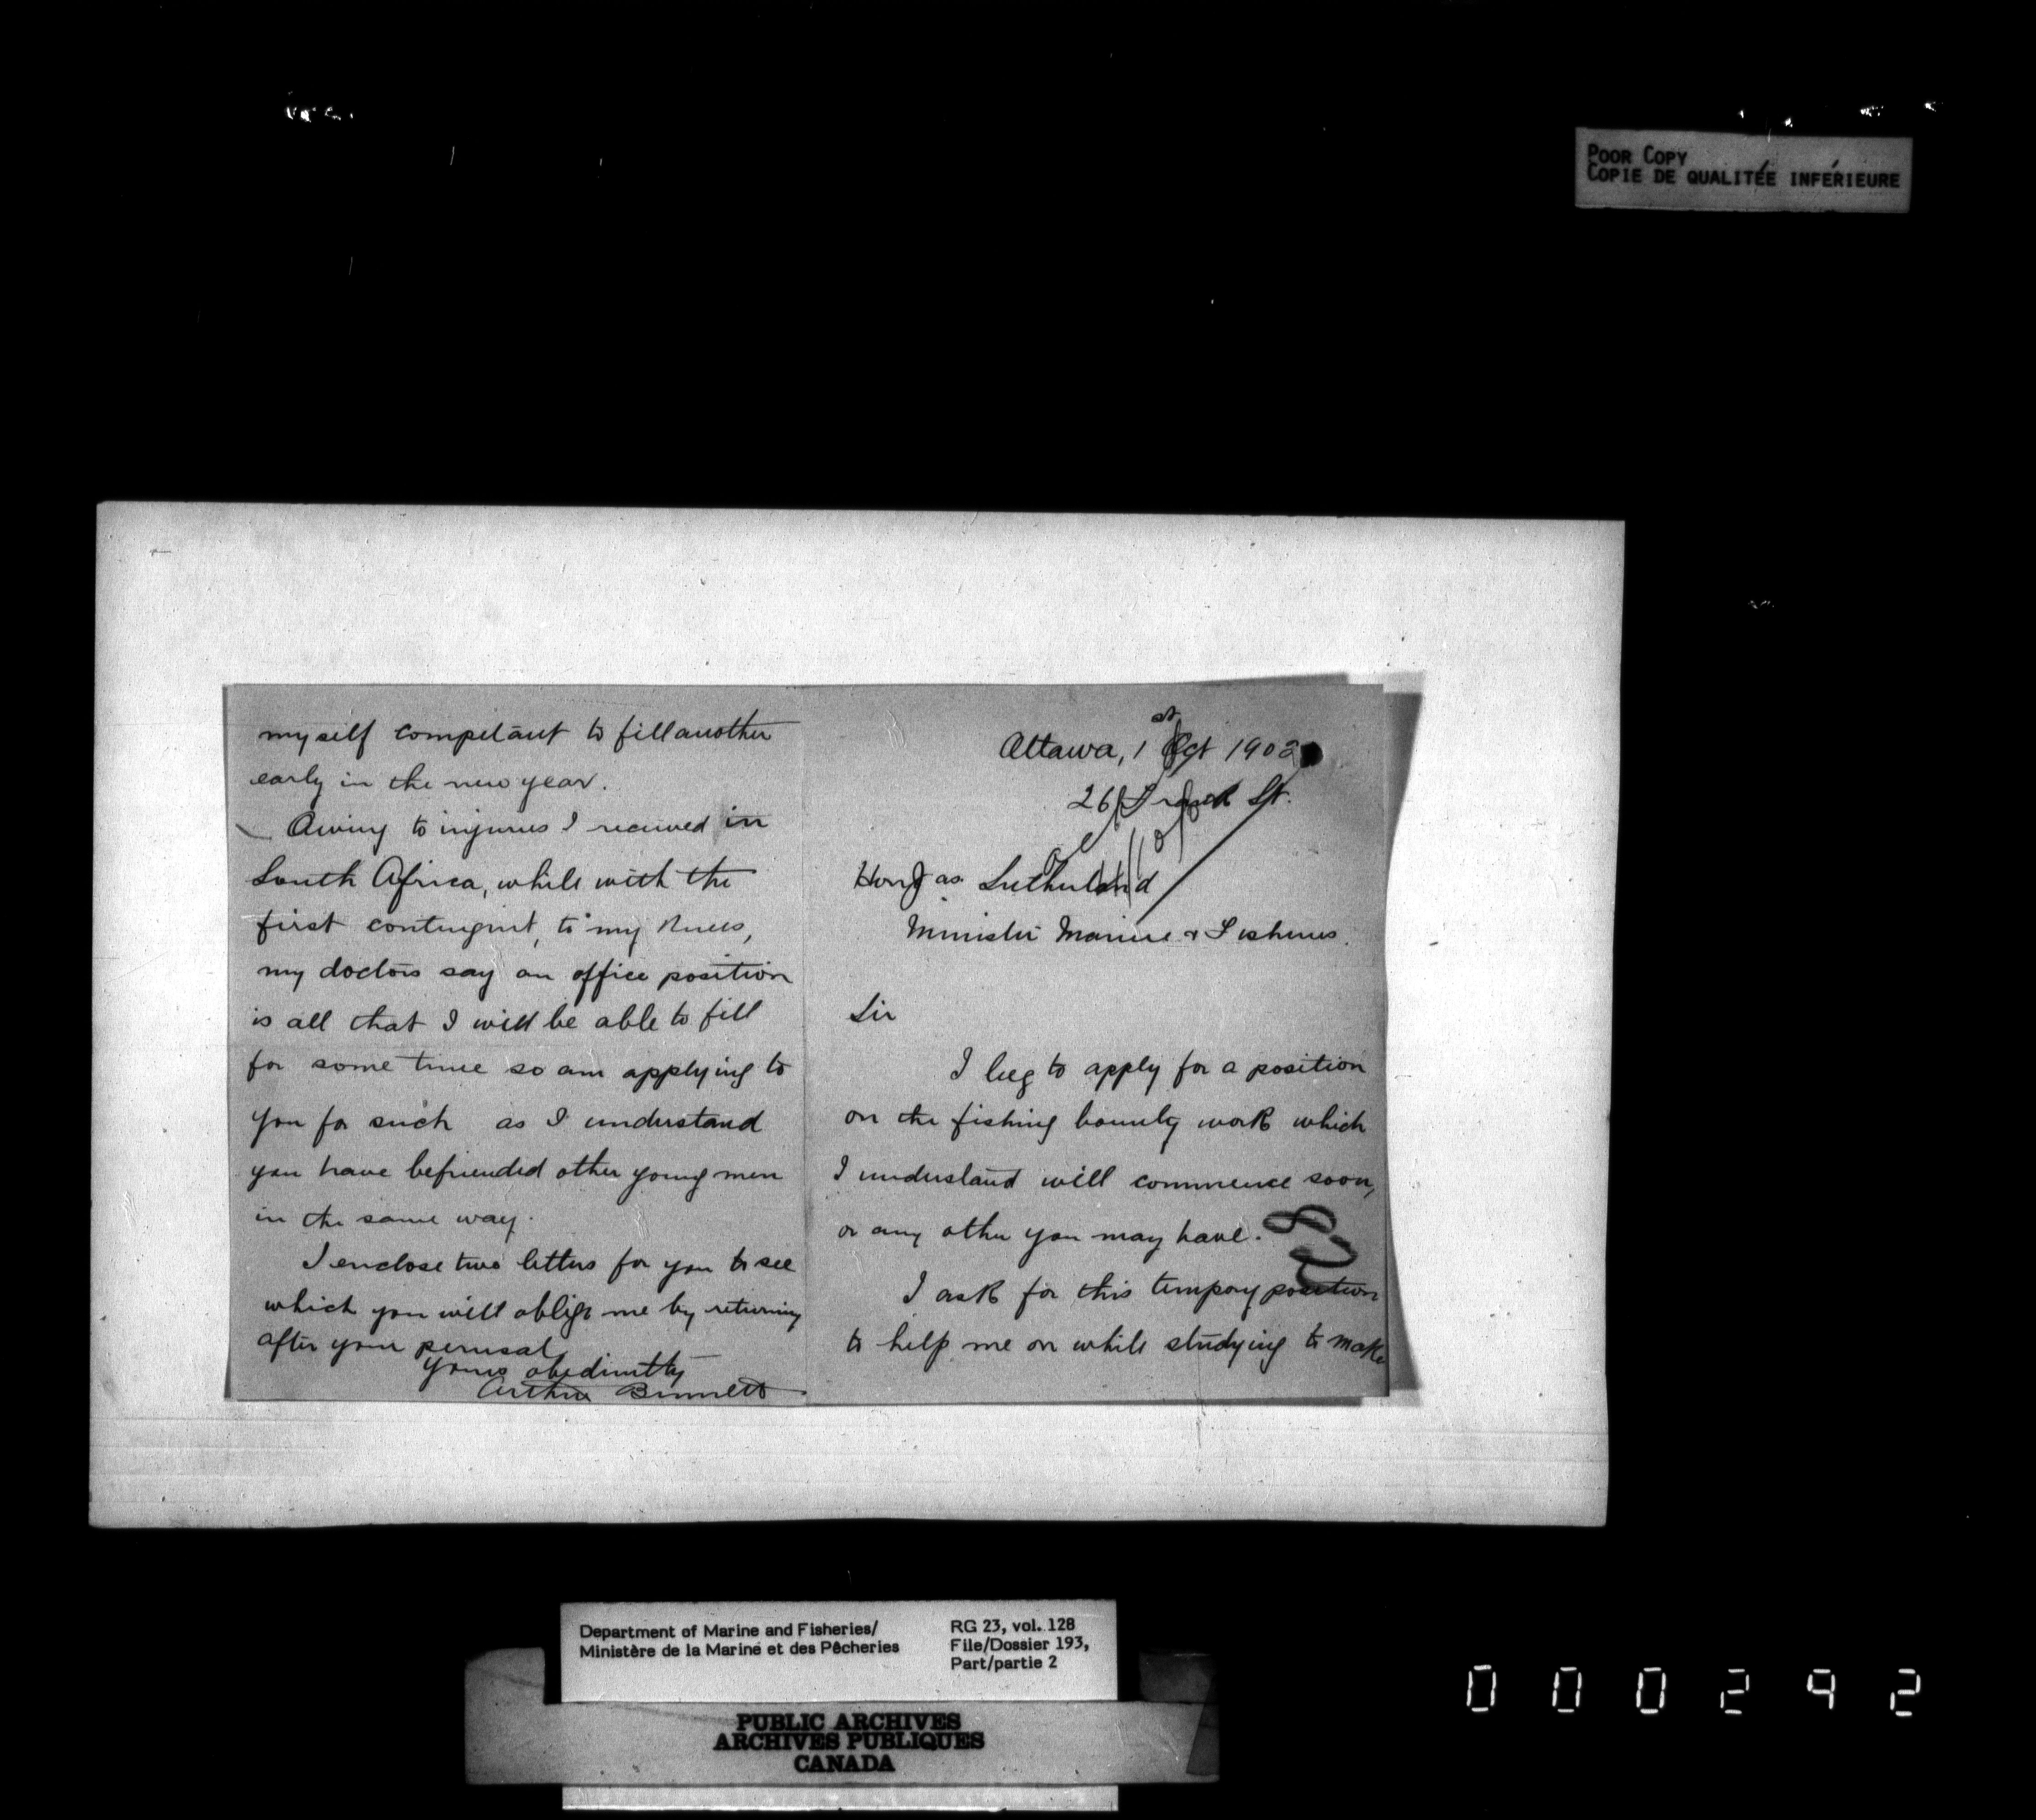 POOR COPY
COPIE DE QUALITÉE INFÉRIEURE
Ottawa, 1st Oct 1902
26 Frank St.
Hon Jas. Sutherland
Minister Marine & Fisheries.
Sir
I beg to apply for a position
on the fishing bounty work which
I understand will commence soon,
or any other you may have.
I ask for this tempory position
to help me on while studying to make
myself competant to fill another
early in the new year.
Owing to injuries I received in
South Africa, while with the
first contingent, to my knees,
my doctors say an office position
is all that I will be able to fill
for some time so am applying to
you for such as I understand
you have befriended other young men
in the same way.
I enclose two letters for you to see
which you will oblige me by returning
after your perusal
Yours obediently
Arthur Bennett
Department of Marine and Fisheries/
Ministère de la Marine et des Pêcheries
RG 23, vol. 128
File/Dossier 193,
Part/partie 2
PUBLIC ARCHIVES
ARCHIVES PUBLIQUES
CANADA
000292